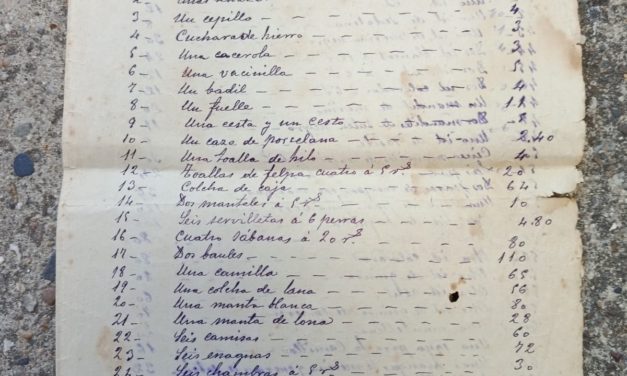 3 - Un cepillo - - - - - - 4
4 - Cuchara de hierro - - - - 3
5 - Una cacerola - - - - - 3
6 - Una vacinilla - - - - - 5
7 - Un badil - - - - - - 4
8 - Un fuelle - - - - - - 11
9 - Una cesta y un cesto - - - 8
10 - Un cazo de porcelana - - - 2.40
11 - Una toalla de hilo - - - - 4
12 - Toallas de felpa cuatro á 5 rs - - 20
13 - Colcha de caja - - - - - 64
14 - Dos manteles á 5 rs - - - - 10
15 - Seis servilletas á 6 perras - - - 4.80
16 - Cuatro sábanas á 20 rs - - - 80
17 - Dos baules - - - - - - 110
18 - Una camilla - - - - - - 65
19 - Una colcha de lana - - - - 56
20 - Una manta blanca - - - - 80
21 - Una manta de lona - - - - 28
22 - Seis camisas - - - - - 60
23 - Seis enaguas - - - - - 72
Seis chambras á 5 rs - - - 30